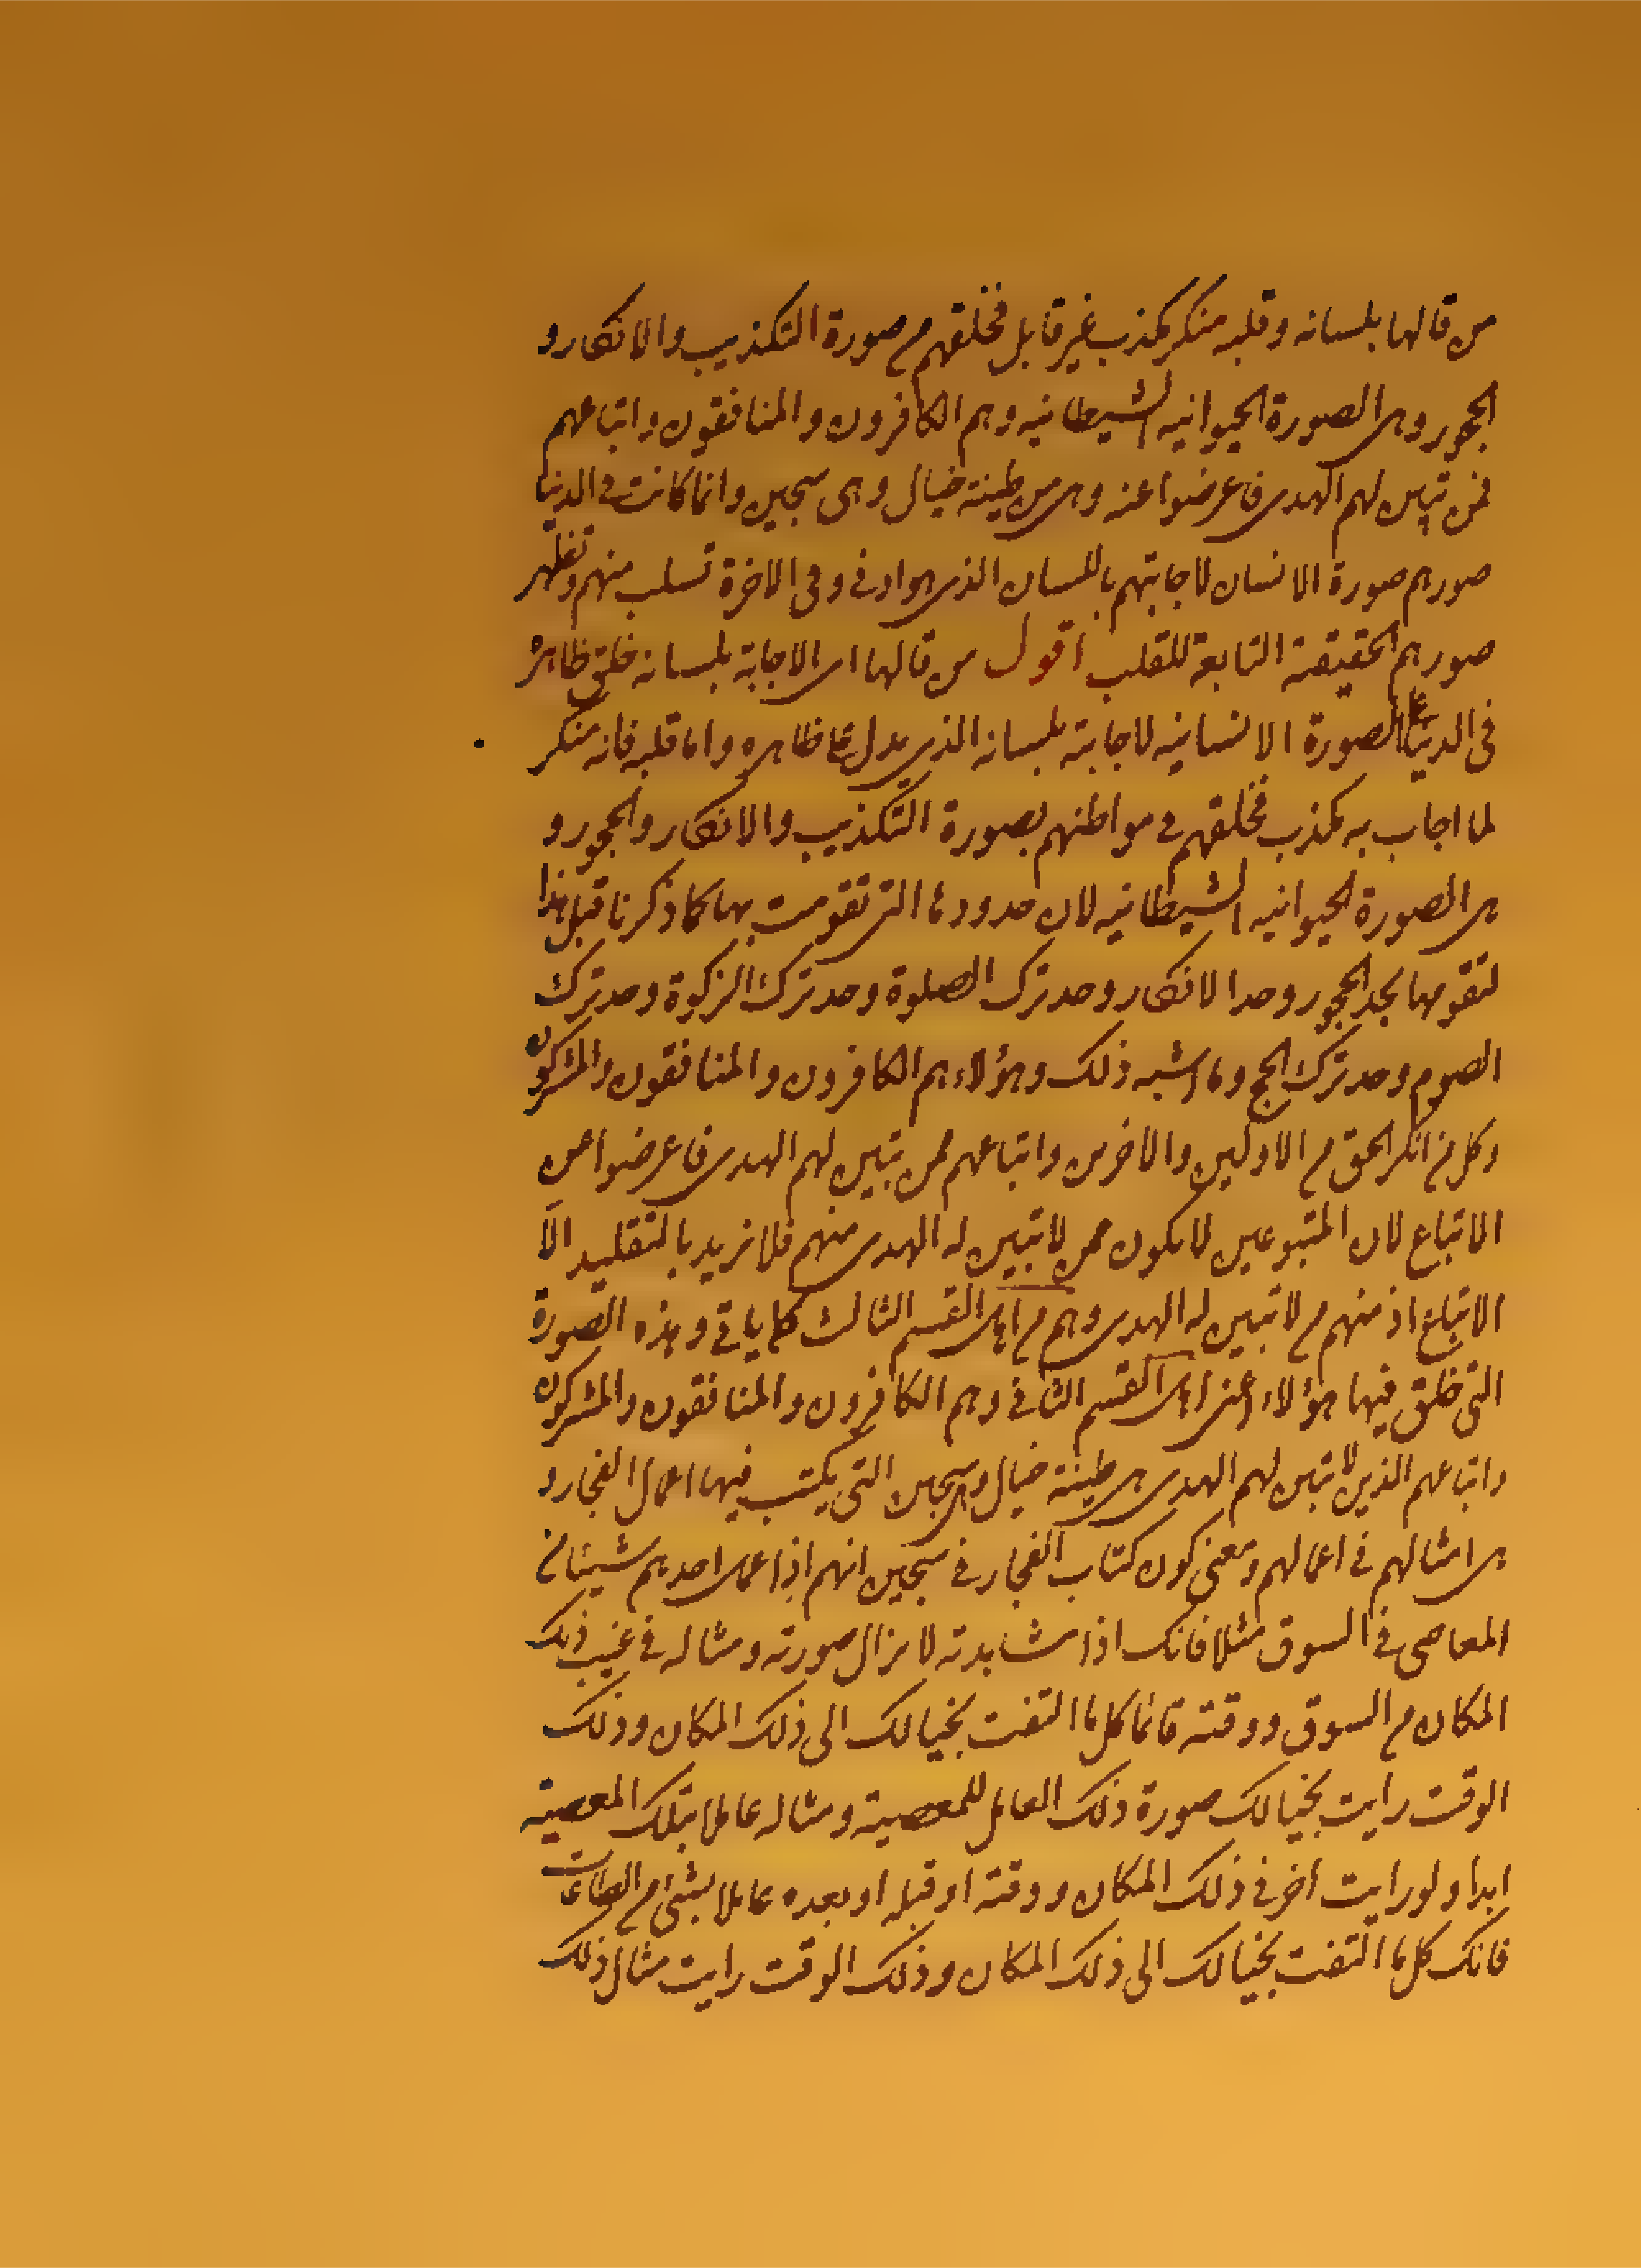 من قالها بلسانه وقلبه منكر مكذب غير قابل فخلقهم من صورة التكذيب والانكار و
الجحود وهى الصورة الحيوانيه الشيطانيه وهم الكافرون والمنافقون واتباعهم
ممن تبين لهم الهدى فاعرضوا عنه وهى من طينة خبال وهى سجين وانما كانت فى الدنيا
صورهم صورة الانسان لاجابتهم باللسان الذى هو ادنى وفى الاخرة تسلب منهم وتظهر
صورهم الحقيقة التابعة للقلب اقول من قالها اى الاجابة بلسانه خلق ظاهره
فى الدنيا على الصورة الانسانيه لاجابته بلسانه الذى يدل على ظاهره واما قلبه فانه منكر
لما اجاب به مكذب فخلقهم فى مواطنهم بصورة التكذيب والانكار والجحود و
هى الصورة الحيوانيه الشيطانيه لان حدودها التى تقومت بها كما ذكرنا قبل هذا
لتقومها بحد الجحود وحد الانكار وحد ترك الصلوة وحد ترك الزكوة وحد ترك
الصوم وحد ترك الحج وما اشبه ذلك وهؤلاء هم الكافرون والمنافقون والمشركون
وكل من انكر الحق من الاولين والاخرين واتباعهم ممن تبين لهم الهدى فاعرضوا عن
الاتباع لان المتبوعين لا يكون ممن لا تبين له الهدى منهم فلا نريد بالتقليد الّا
الاتباع اذ منهم من لا تبين له الهدى وهم من اهل القسم الثالث كما ياتى وهذه الصورة
التى خلق فيها هؤلاء اعنى اهل القسم الثانى وهم الكافرون والمنافقون والمشركون
واتباعهم الذين لا تبين لهم الهدى هى طينة خبال وهى سجين التى يكتب فيها اعمال الفجار و
هى امثالهم فى اعمالهم ومعنى كون كتاب الفجار فى سجين انهم اذا عمل احدهم شيئا من
المعاصى فى السوق مثلا فانك اذا شاهدته لا يزال صورته ومثاله فى غيب ذلك
المكان من السوق ووقته قائما كل ما التفت بخيالك الى ذلك المكان وذلك
الوقت رايت بخيالك صورة ذلك العامل للمعصية ومثاله عاملا بتلك المعصية
ابدا ولو رايت اخر فى ذلك المكان ووقته او قبله او بعده عاملا بشئ من الطاعات
فانك كل ما التفت بخيالك الى ذلك المكان وذلك الوقت رايت مثال ذلك